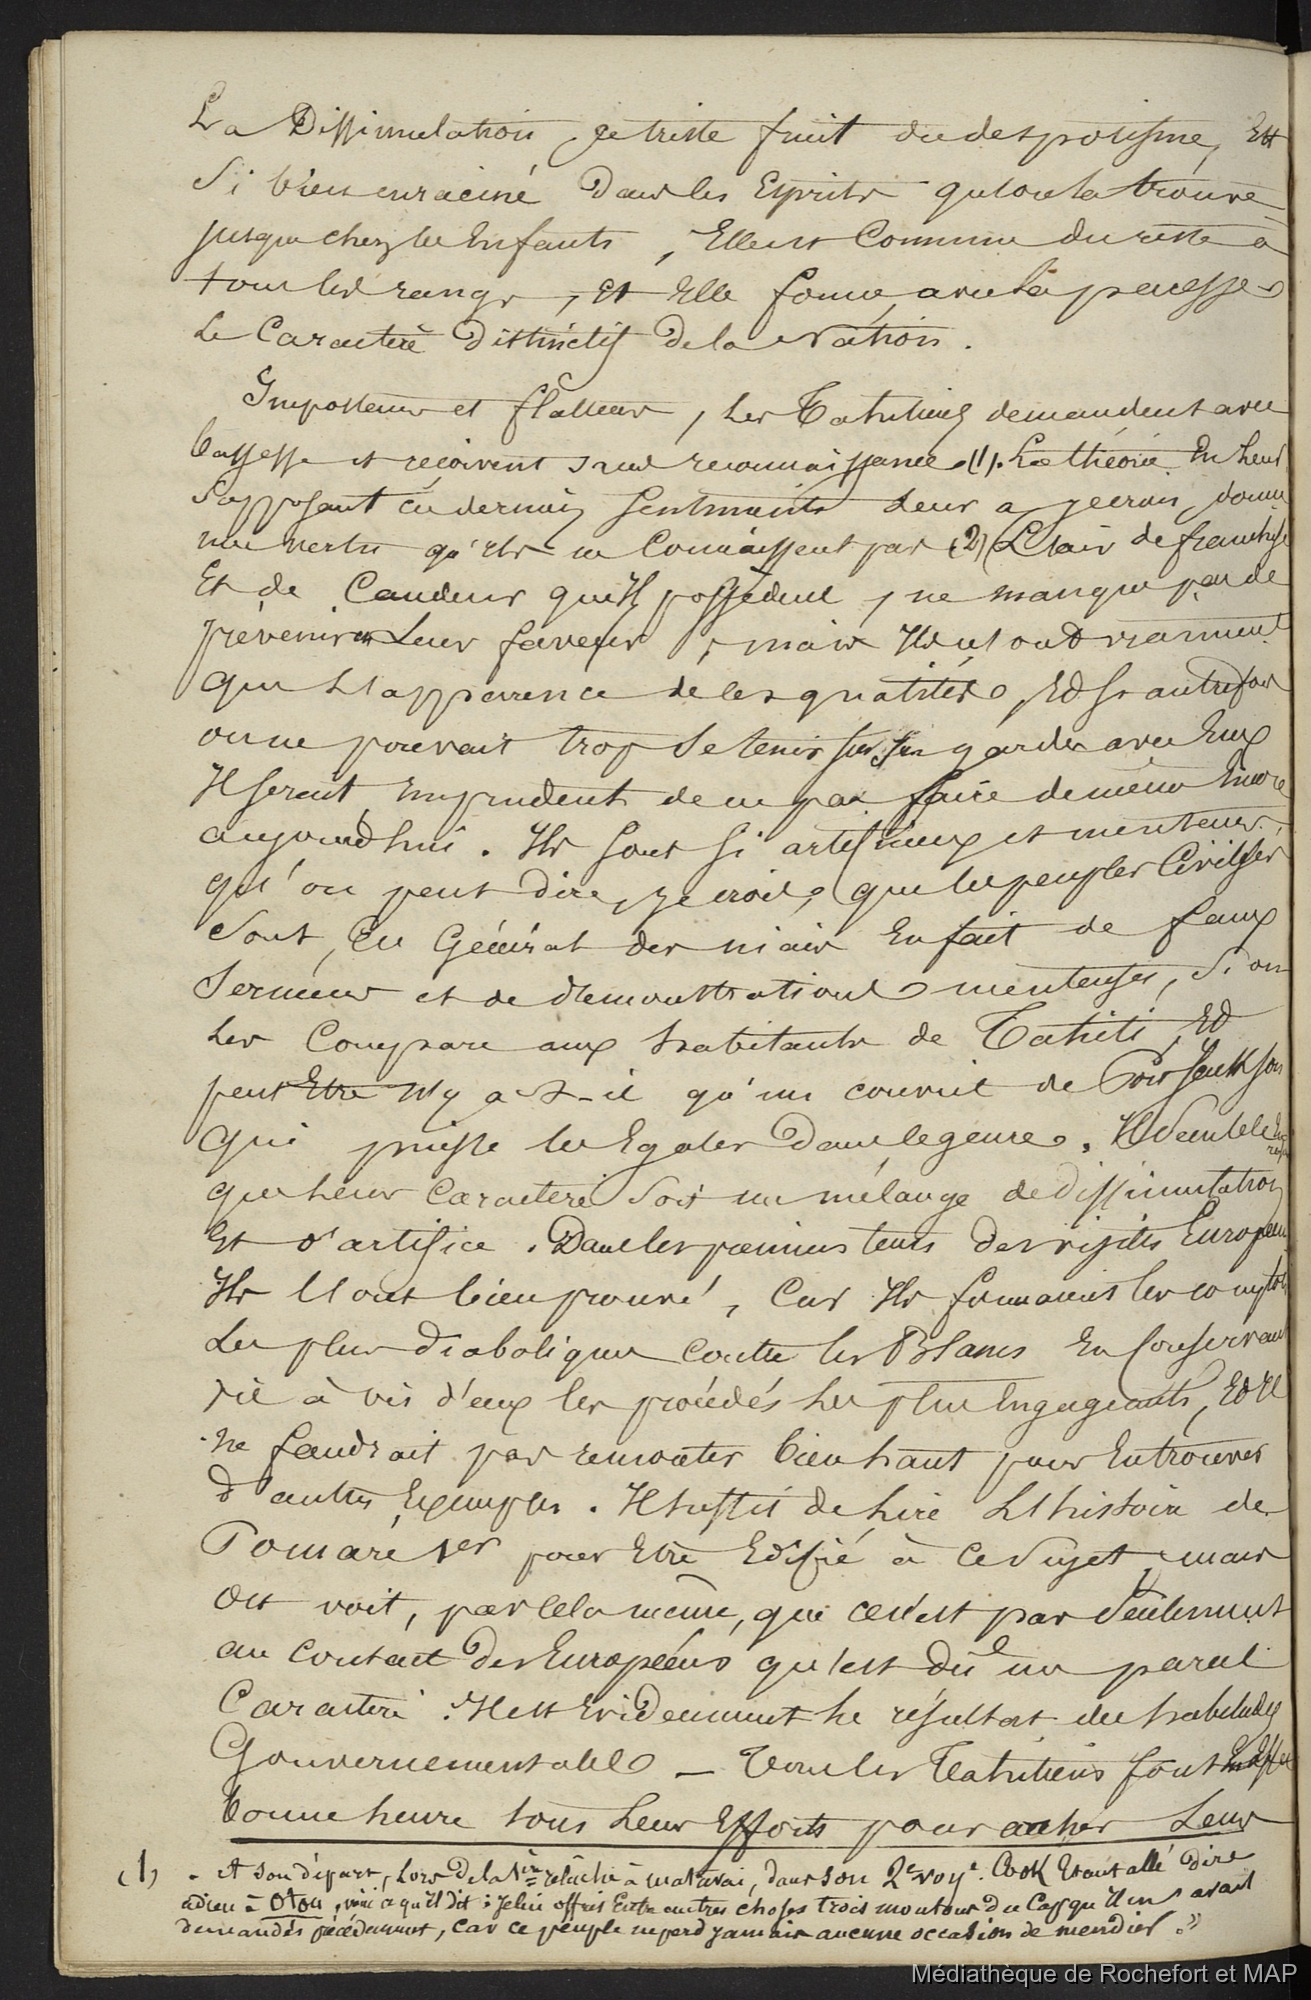 La Dissimulation, ce triste fruit du despotisme, Est
si bien enraciné Dans les Esprits qu'on la trouve
jusque chez les Enfants, Elle est Commune du reste à
tous les rangs, Et Elle forme, avec la paresse
Le Caractère Distinctif De la Nation.
Imposteurs et flatteurs, Les Tahitiens demandent avec
bassesse et reçoivent sans reconnaissance (1). La théorie En Leur
supposant ce dernier sentiment Leur a, je crois, donné
une vertu qu'ils ne Connaissent pas (2) L'air de franchise
Et de Candeur qu'ils possèdent, ne manque pas de
prévenir en Leur faveur, mais Ils n'ont vraiment
que L'apparence de ces qualités, Et si autrefois
on ne pouvait trop se tenir sur ses gardes avec Eux
Il serait imprudent de ne pas faire de même Encore
aujourd'hui. Ils sont si artificieux et menteurs,
qu'on peut Dire, je crois, que les peuples Civilisés
sont, En Général des niais En fait de faux
sermens et de démonstrations menteuses, si on
Les Compare aux habitants de Tahiti, Et
peut Etre n'y a-t-il qu'un
qui puisse les Egaler Dans le genre. Il semble
que Leur Caractère soit un mélange de Dissimulation
Et d'artifice. Dans les premiers tems des visites Européennes
Ils l'ont bien prouvé, Car Ils formaient les complots
Les plus Diaboliques Contre les Blancs En Conservant
vis à vis d'eux les procédés Les plus Engageants, Et Il
ne faudrait pas remonter bien haut pour En trouver
d'autres Exemples. Il suffit de Lire L'histoire de
Pomaré 1er pour Etre Edifié à Ce sujet, mais
on voit, par cela même, que ce n'est pas seulement
au Contact Des Européens qu'est Dû un pareil
Caractère. Il est Evidemment Le résultat des habitudes
Gouvernementales — Tous les Tahitiens font
bonne heure tous Leurs Efforts pour cacher Leurs
(1) . A son départ, Lors De la 1ère relâche à matavai, dans son 2e voye. Cook Etant allé Dire
adieu à Otou, voici ce qu'il dit : je lui offris Entre autres choses trois moutons du Cap qu'Il m'avait
demandés précédemment, Car ce peuple ne perd jamais aucune occasion de mendier. »
Médiathèque de Rochefort et MAP